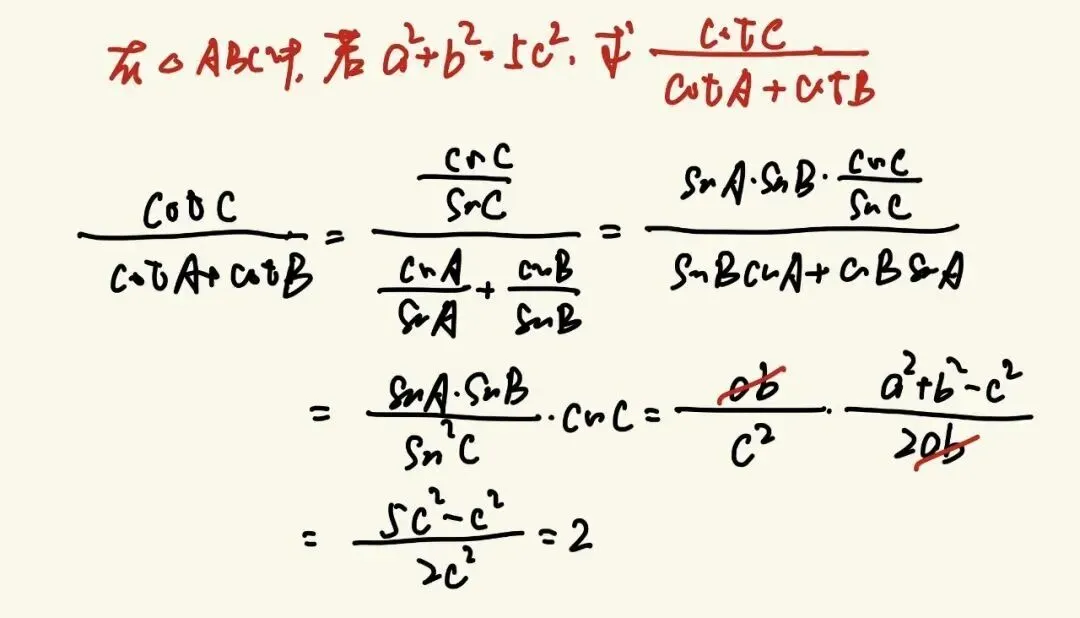 在△ABC中,若a²+b²=5c²,求 cotC/(cotA+cotB)
cotC/(cotA+cotB) = (cosC/sinC)/(cosA/sinA + cosB/sinB) = (sinA·sinB·cosC/sinC)/(sinBcosA+cosBsinA)
= (sinA·sinB)/(sin²C)·cosC = ab/c² · (a²+b²-c²)/(2ab)
= (5c²-c²)/(2c²) = 2